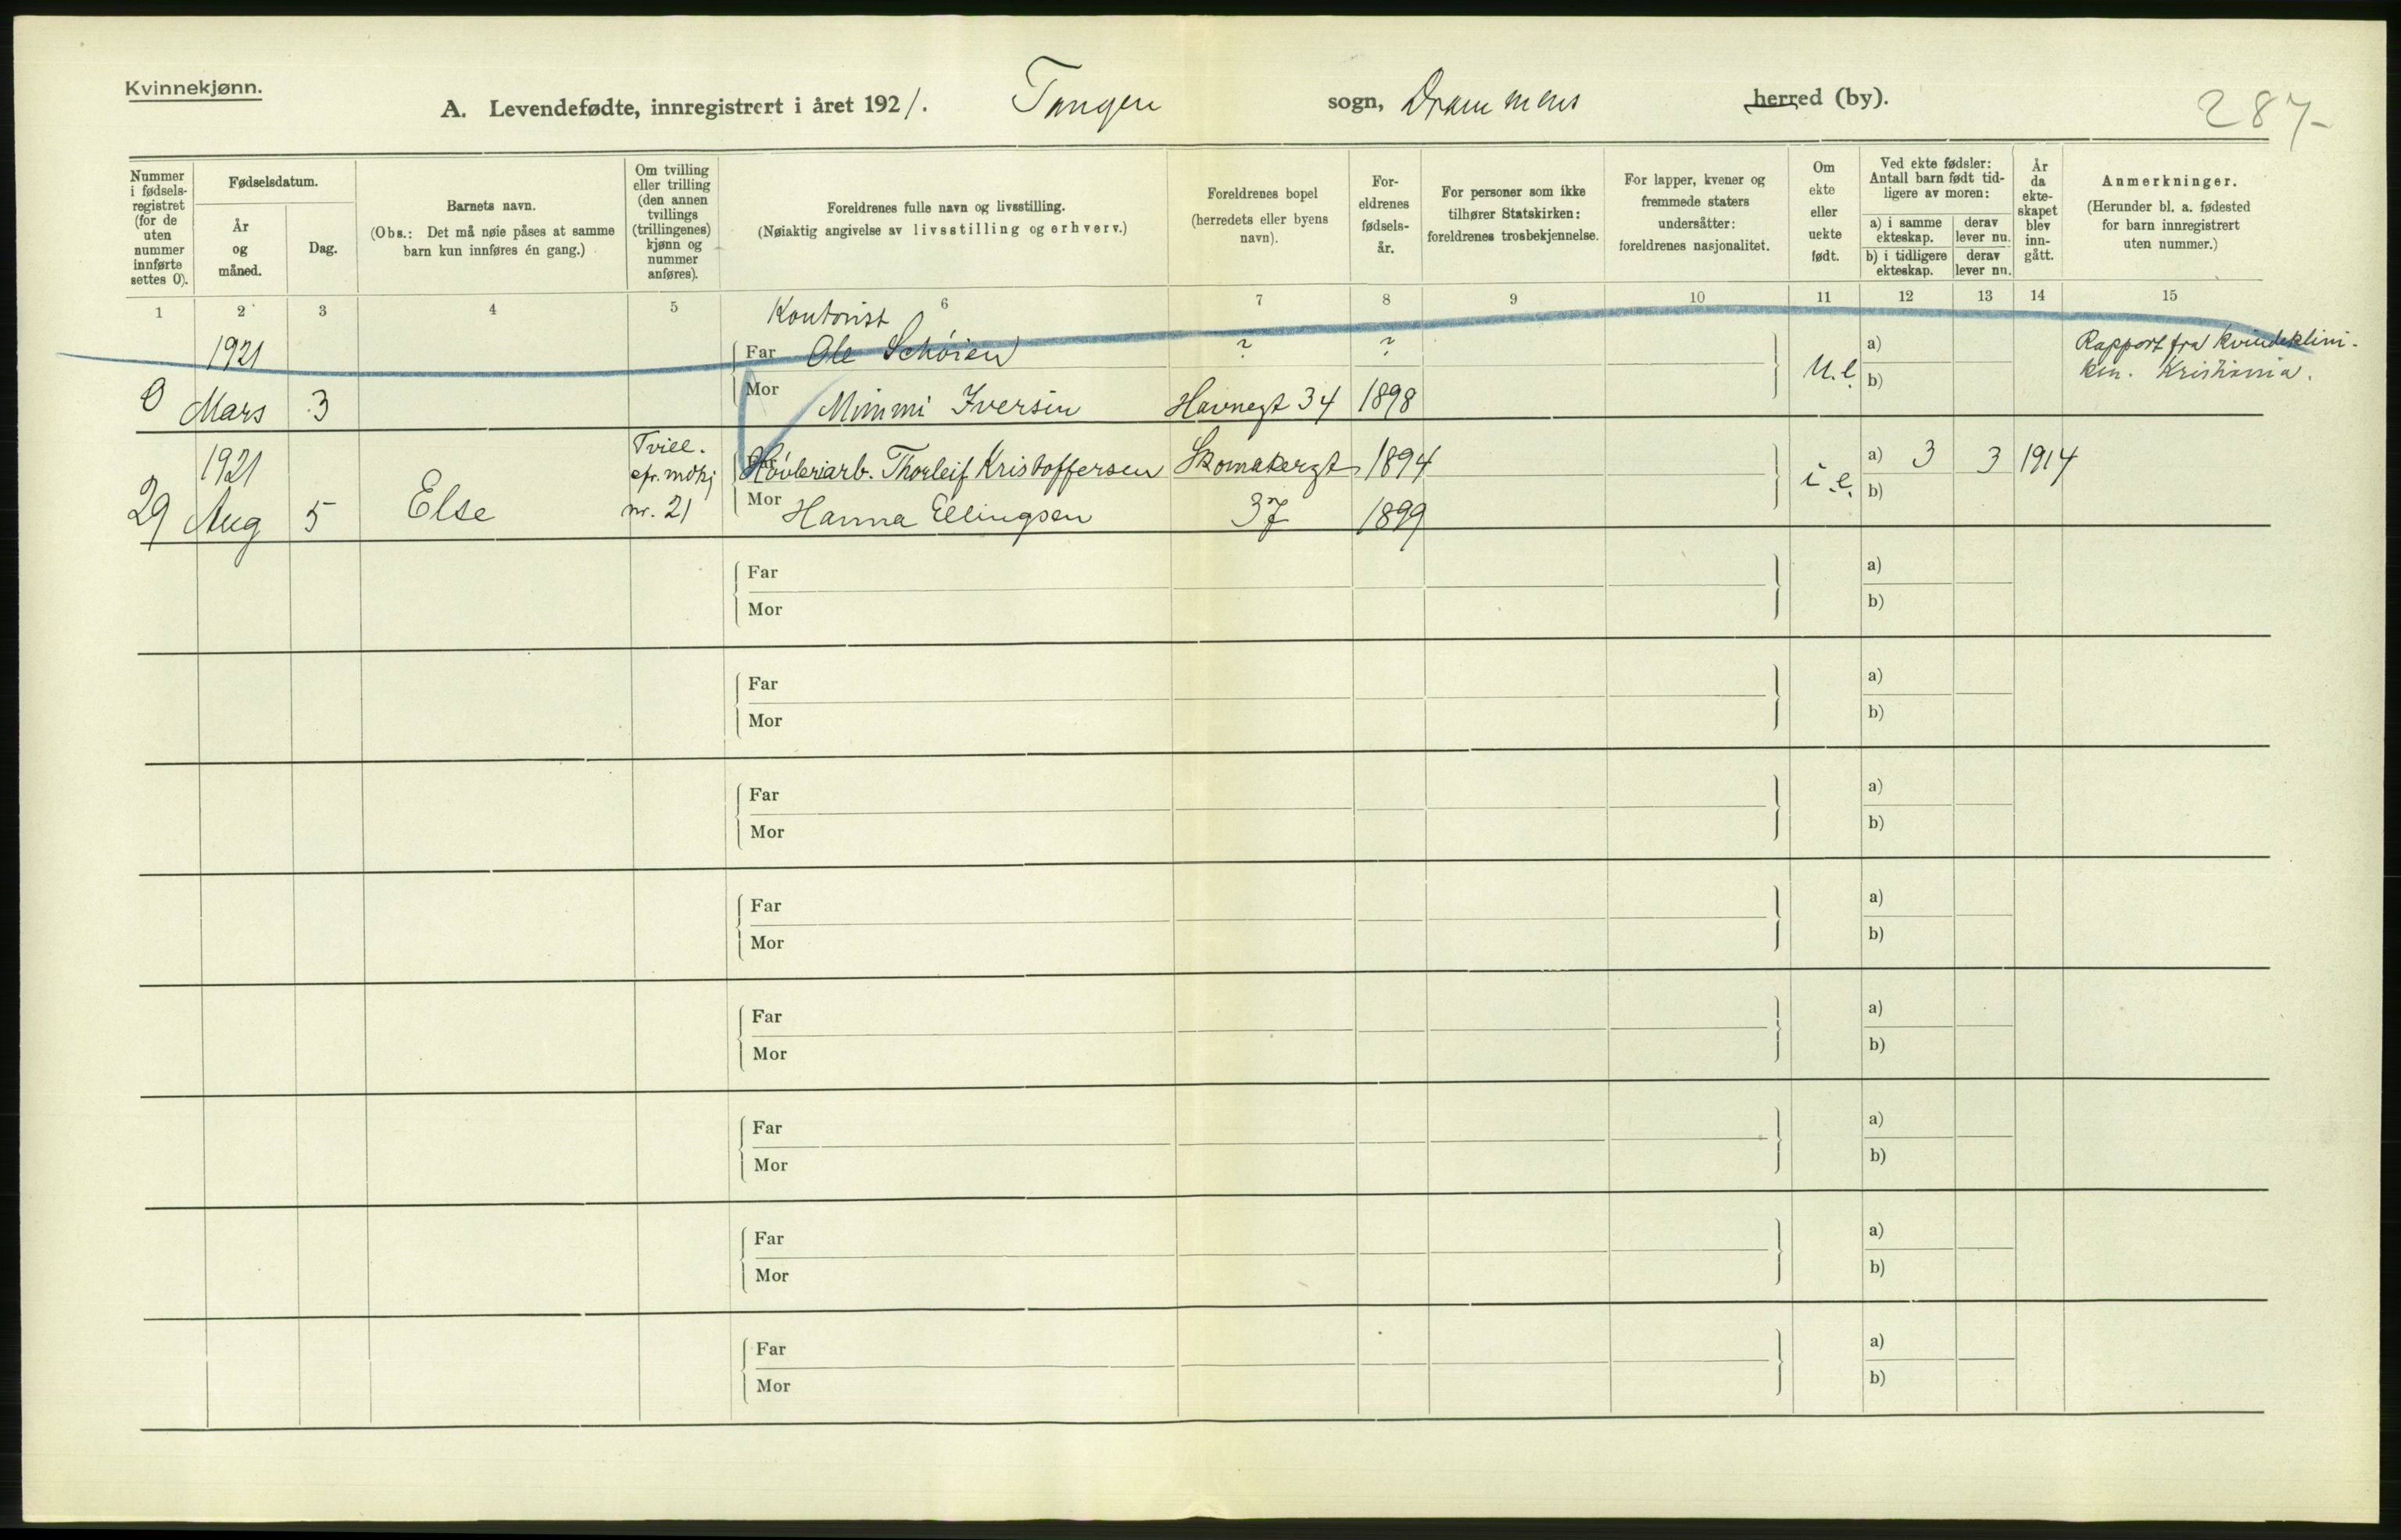 Kvinnekjønn.
A. Levendefødte, innregistrert i året 1921. Tangen sogn, Drammens herred (by).
287-
Nummer i fødsels-registret (for de uten nummer innførte settes 0).
Fødselsdatum.
År og måned.
Dag.
Barnets navn.
(Obs.: Det må nøie påses at samme barn kun innføres én gang.)
Om tvilling eller trilling (den annen tvillings (trillingenes) kjønn og nummer anføres).
Foreldrenes fulle navn og livsstilling.
(Nøiaktig angivelse av livsstilling og erhverv.)
Foreldrenes bopel (herredets eller byens navn).
For-eldrenes fødsels-år.
For personer som ikke tilhører Statskirken: foreldrenes trosbekjennelse.
For lapper, kvener og fremmede staters undersåtter: foreldrenes nasjonalitet.
Om ekte eller uekte født.
Ved ekte fødsler: Antall barn født tid-ligere av moren:
a) i samme ekteskap.
derav lever nu.
b) i tidligere ekteskap.
derav lever nu.
År da ekte-skapet blev inn-gått.
Anmerkninger.
(Herunder bl. a. fødested for barn innregistrert uten nummer.)
1 2 3 4 5 6 7 8 9 10 11 12 13 14 15
Kontorist
1921 Far Ole Schøien ? ? a) Rapport fra Kvindeklini-
0 Mars 3 Mor Mimmi Iversen Havnegt 34 1898 u.e. b) ken. Kristiania.
1921 Tvill. Far Høvleriarb. Thorleif Kristoffersen Skomakergt 1894 a) 3 3 1914
cfr. mdkj
29 Aug 5 Else nr. 21 Mor Hanna Ellingsen 37 1899 i.e. b)
Far a)
Mor b)
Far a)
Mor b)
Far a)
Mor b)
Far a)
Mor b)
Far a)
Mor b)
Far a)
Mor b)
Far a)
Mor b)
Far a)
Mor b)